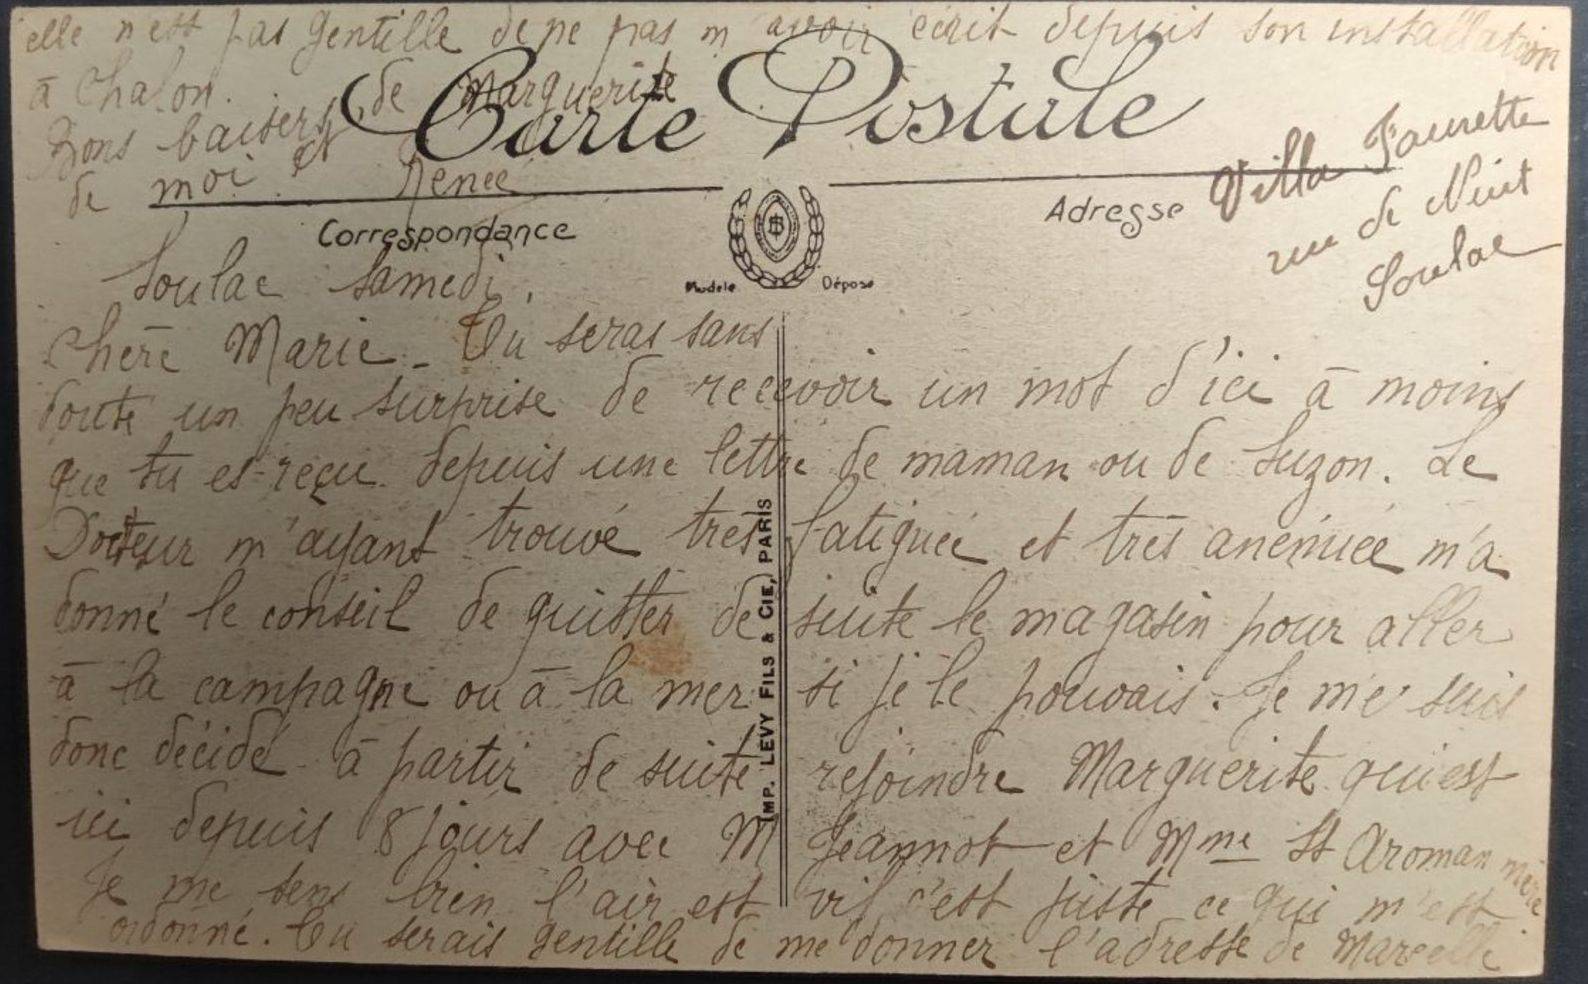 elle n'est pas gentille de ne pas m'avoir écrit depuis son installation
à Chalon.
Bons baisers de Marguerite
de moi et Renée
Carte Postale
Correspondance
Adresse
Villa Laurette
rue de Nuit
Soulac
Modèle Déposé
Soulac Samedi.
Chère Marie - Tu seras sans
doute un peu surprise de recevoir un mot d'ici à moins
que tu es reçu depuis une lettre de maman ou de Suzon. Le
Docteur m'ayant trouvé très fatiguée et très anémiée m'a
donné le conseil de quitter de suite le magasin pour aller
à la campagne ou à la mer si je le pouvais. Je me suis
donc décidé à partir de suite rejoindre Marguerite qui est
ici depuis 8 jours avec M Jeannot et Mme St Aroman mère
Je me sens bien l'air est vif c'est juste ce qui m'est
ordonné. Tu serais gentille de me donner l'adresse de Marcelle
IMP. LEVY FILS & CIE, PARIS